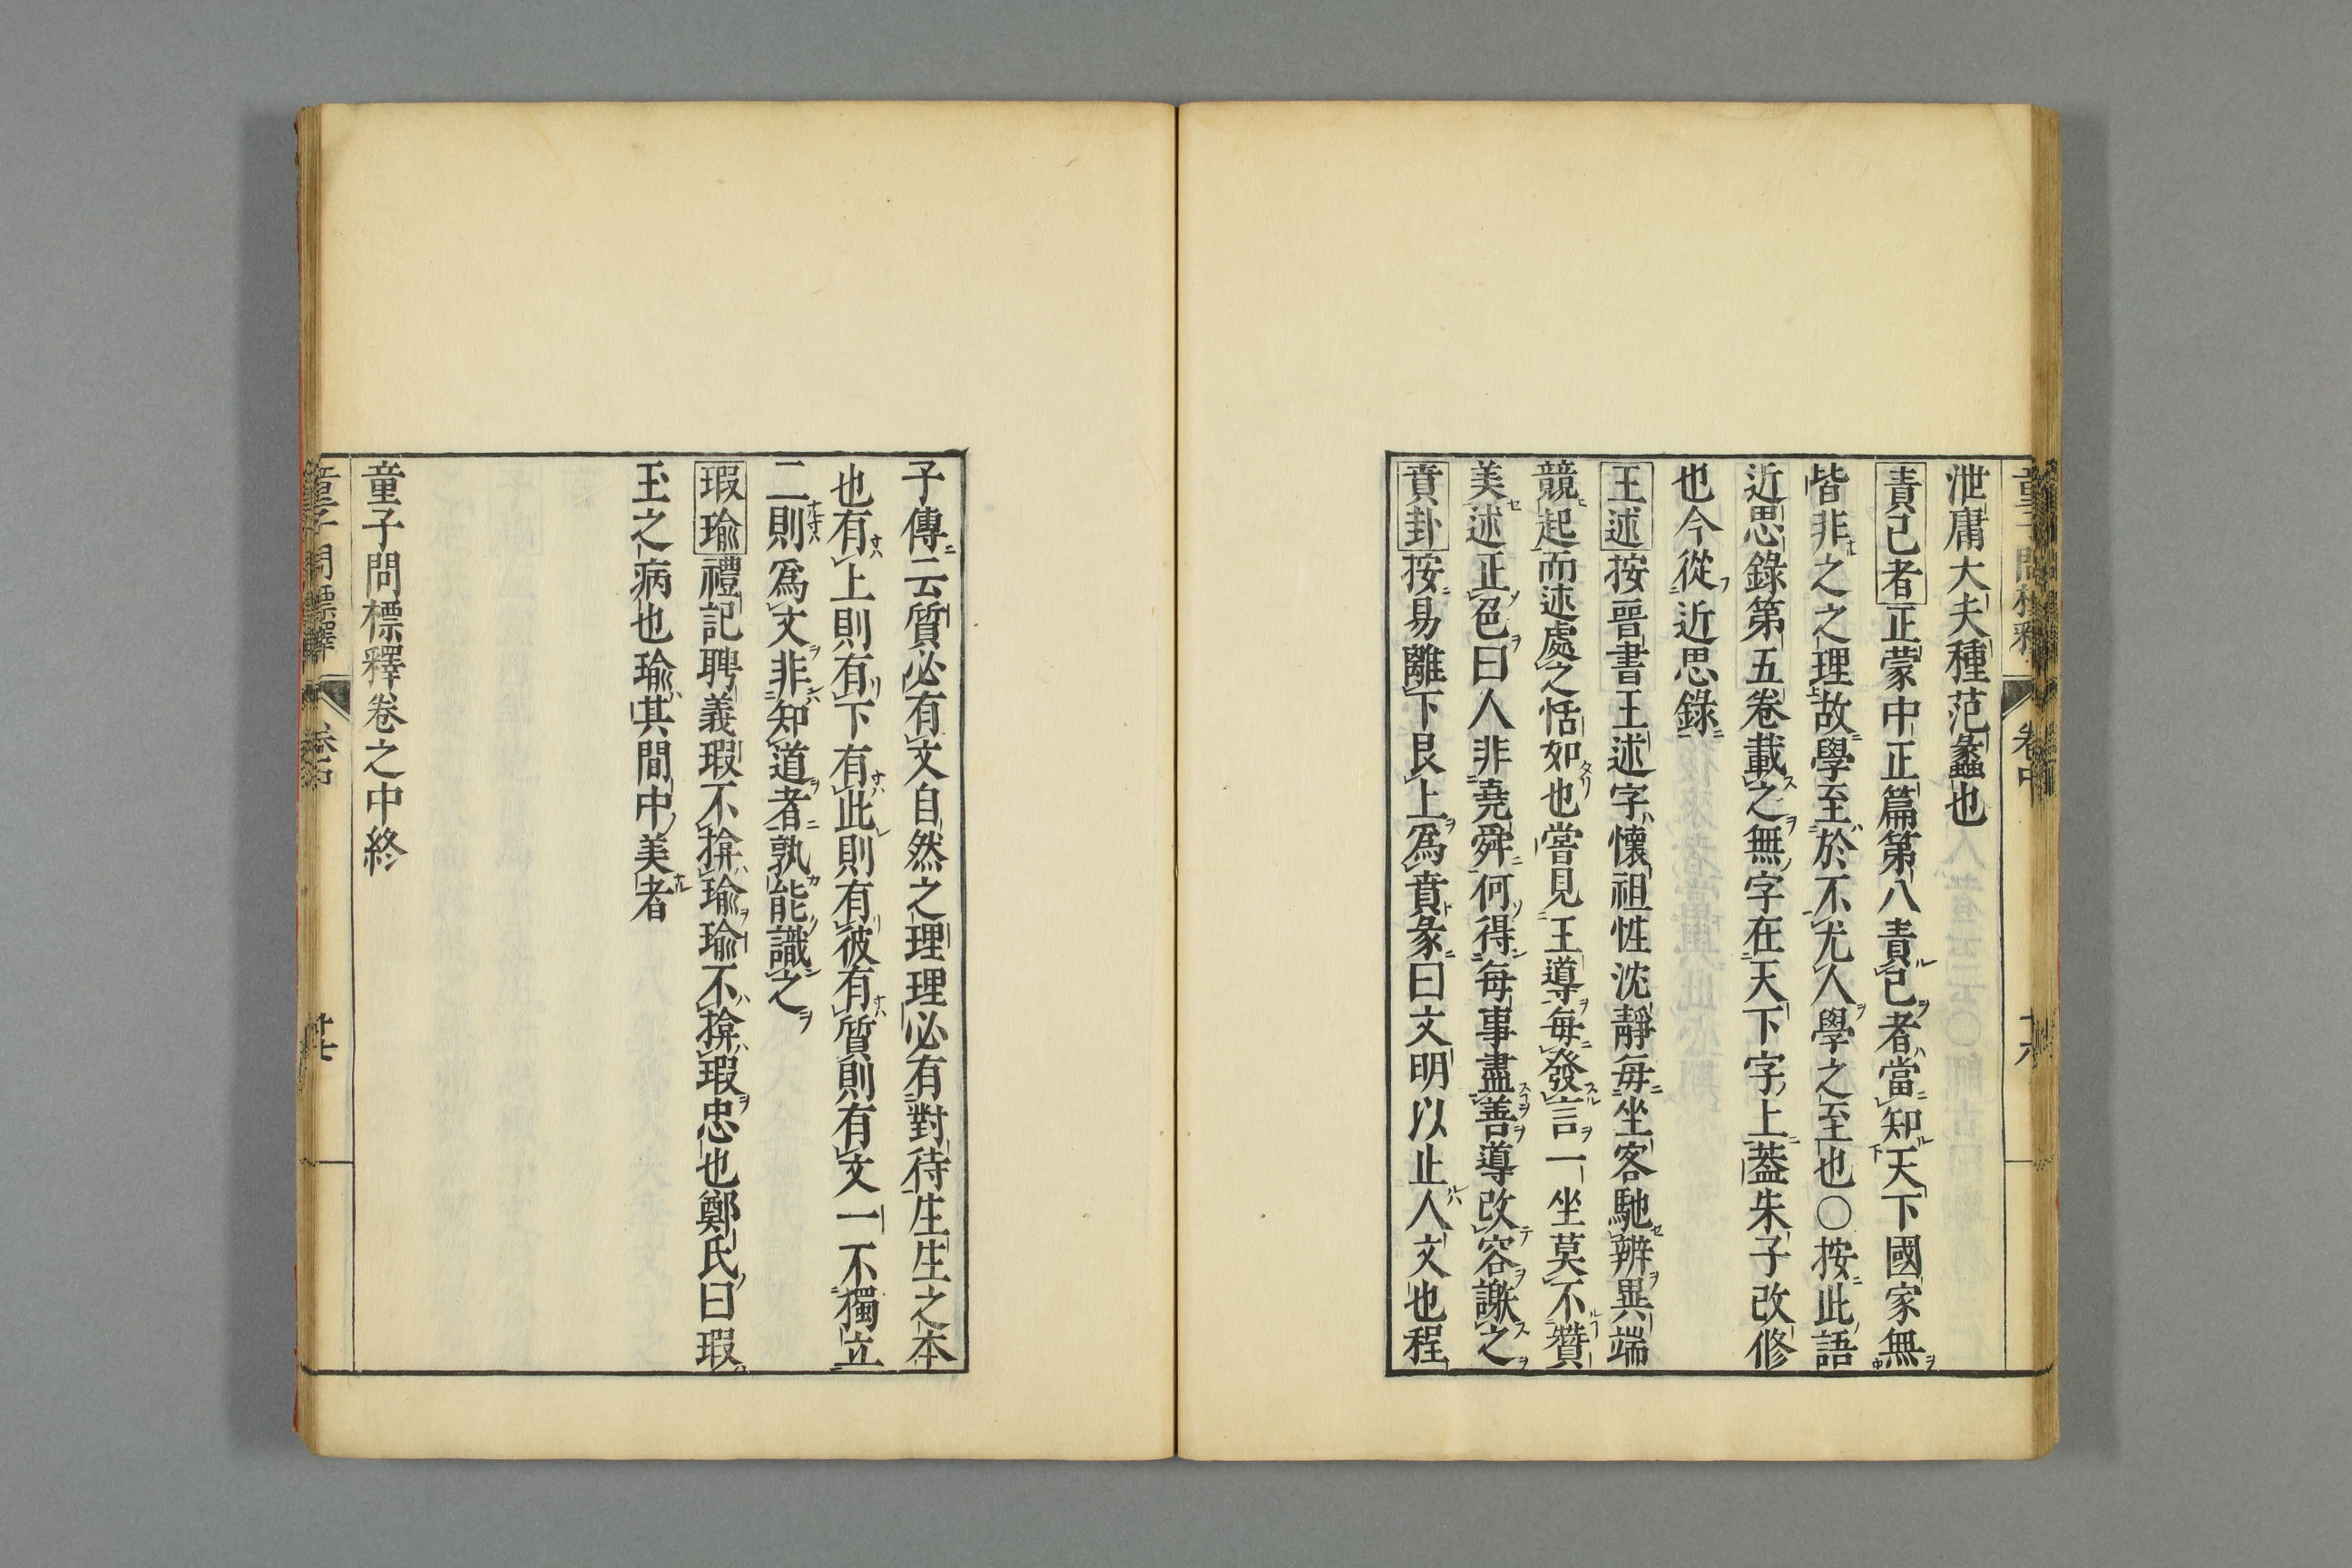 泄庸大夫種范蠡也
責己者正蒙中正篇第八責己者當知天下國家無
皆非之之理故學至於不尤人學之至也〇按此語
近思錄第五卷載之無字在天下字上蓋朱子改修
也今從近思錄
王述按晉書王述字懷祖性沈靜每坐客馳辨異端
競起而述處之恬如也嘗見王導每發言一坐莫不贊
美述正色曰人非堯舜何得每事盡善導改容謝之
賁卦按易離下艮上爲賁彖曰文明以止人文也程
子傳云質必有文自然之理理必有對待生生之本
也有上則有下有此則有彼有質則有文一不獨立
二則爲文非知道者孰能識之
瑕瑜禮記聘義瑕不揜瑜瑜不揜瑕忠也鄭氏曰瑕
玉之病也瑜其間中美者
童子問標釋卷之中終
童子問標釋 卷中 廿七